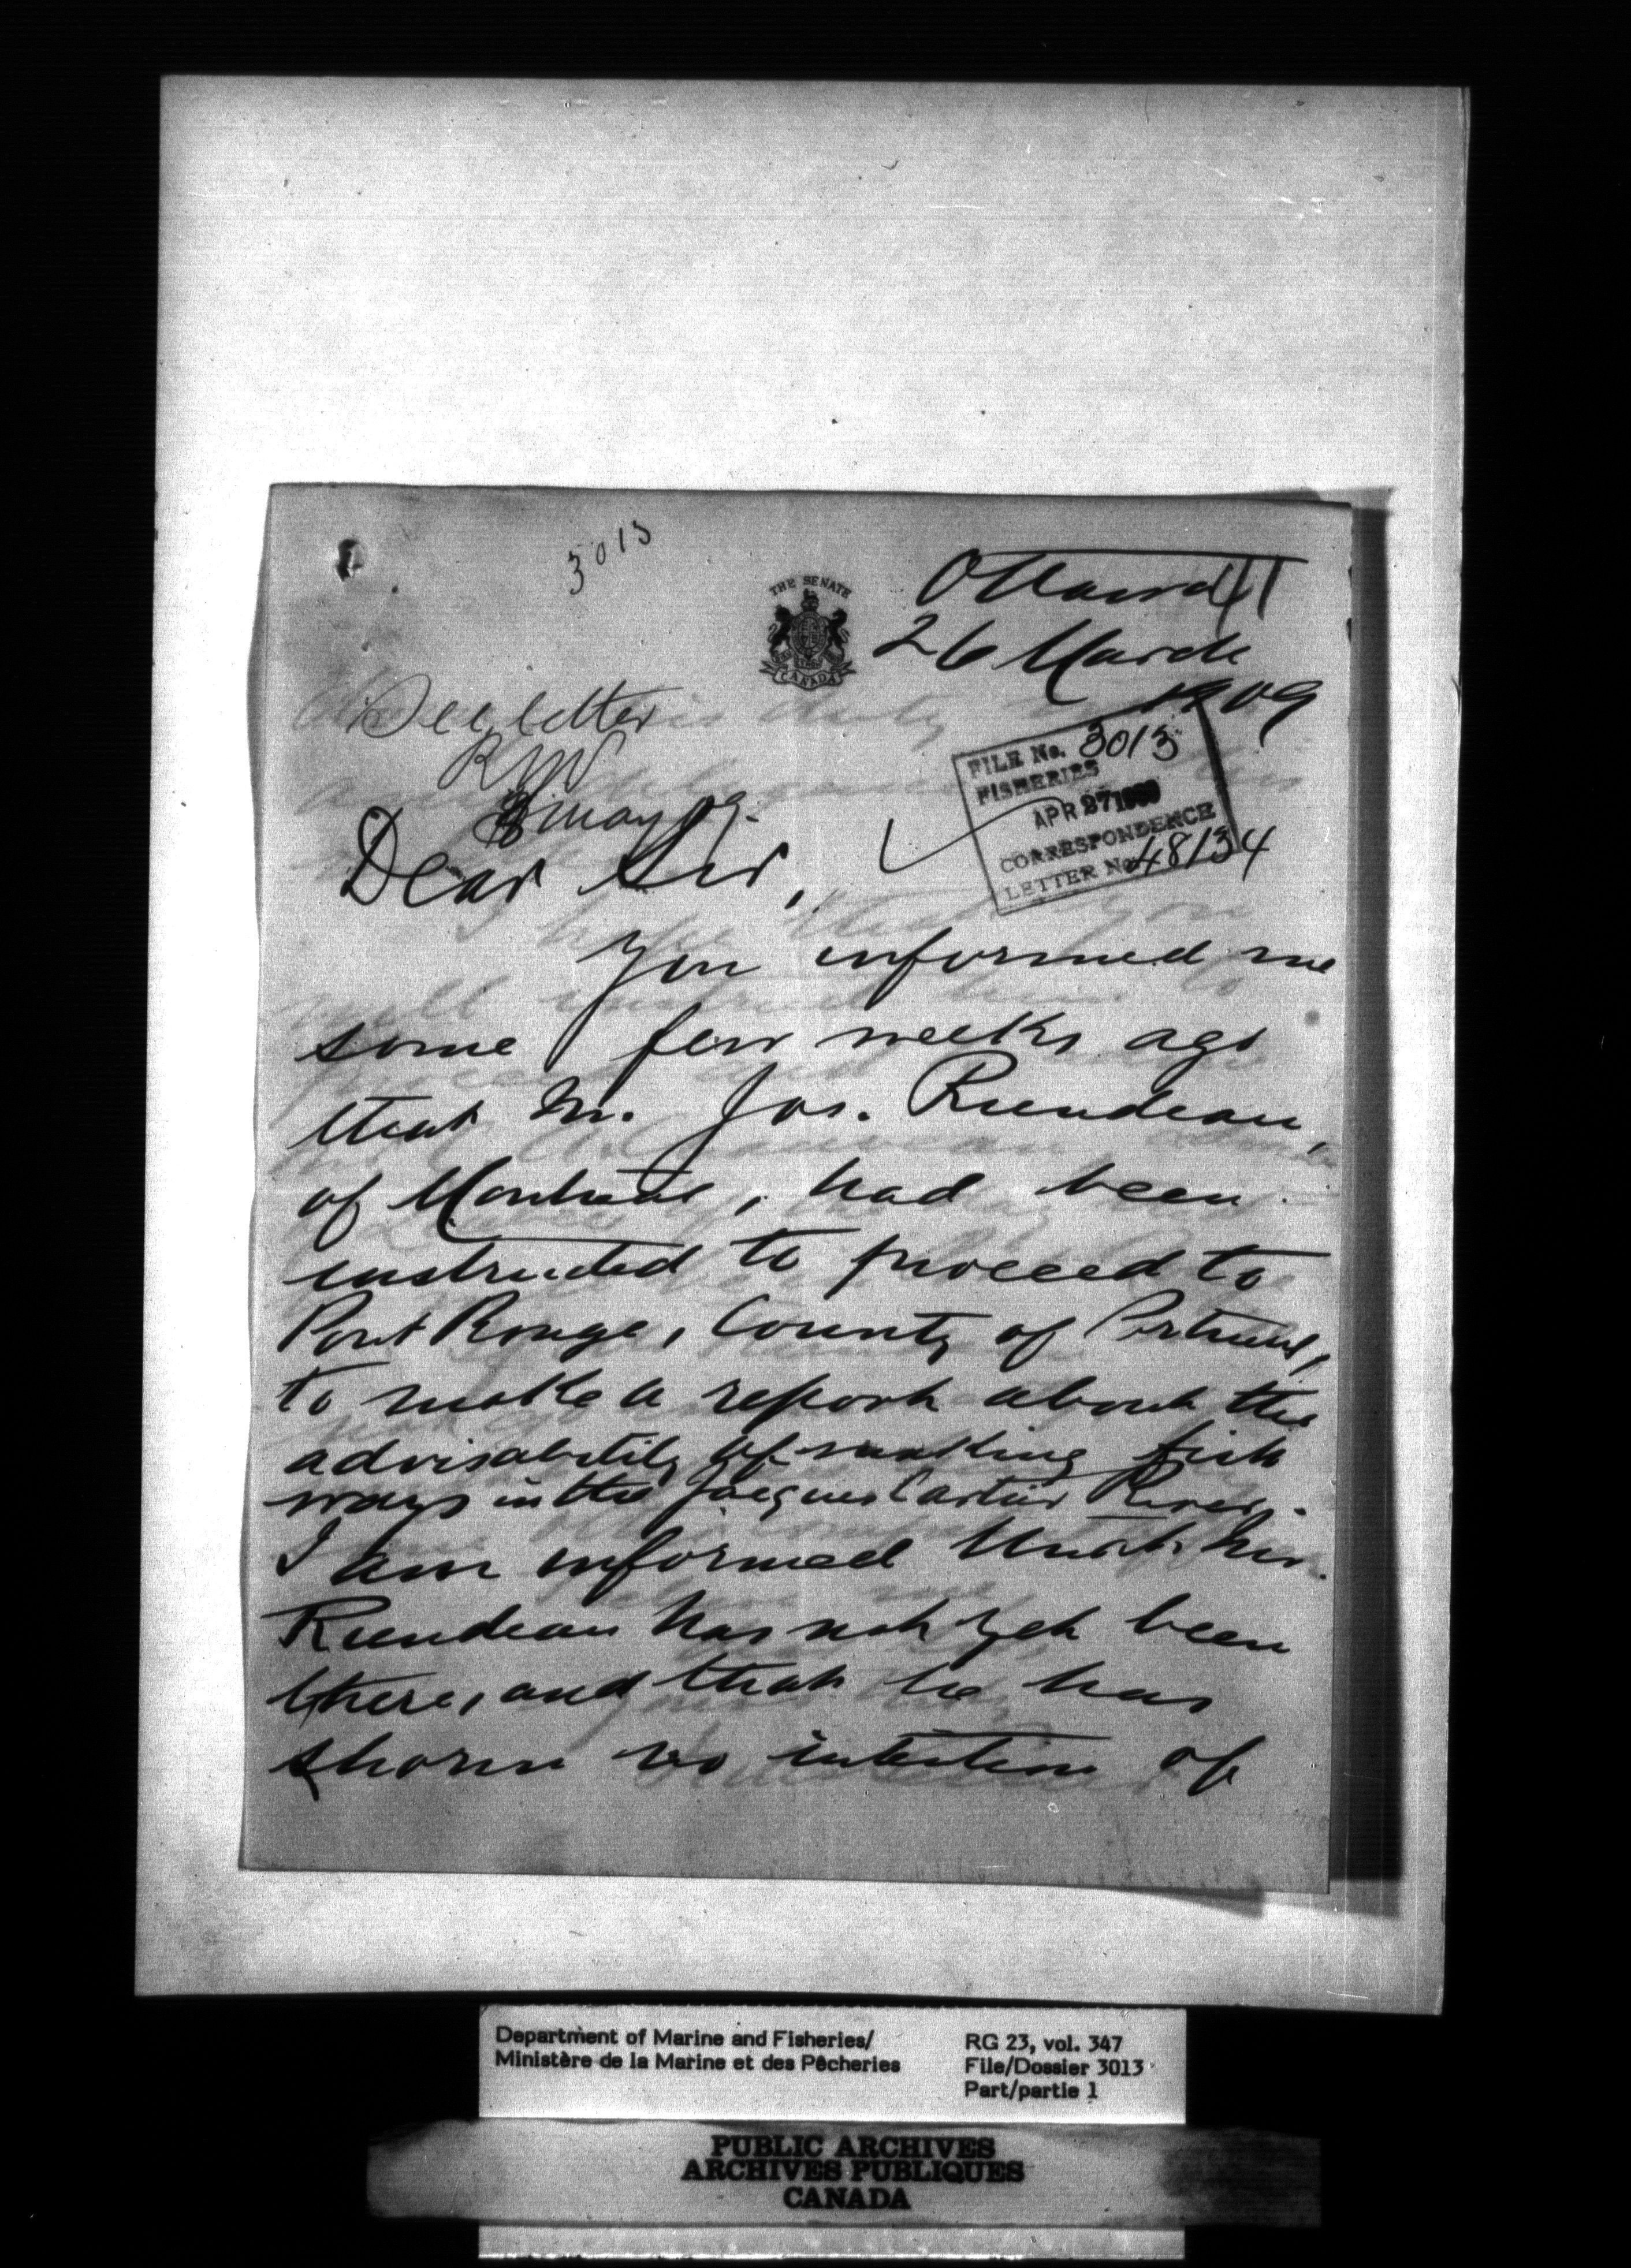 3013
THE SENATE
CANADA
Ottawa
26 March
1909
See letter
8 May 09.
FILE No. 3013
FISHERIES
APR 27 1909
CORRESPONDENCE
LETTER No. 48134
Dear Sir,
You informed me
some few weeks ago
that M. Jos. Rundeau,
of Montreal, had been
instructed to proceed to
Pont Rouge, County of Portneuf,
to make a report about the
advisability of making fish
ways in the Jacques Cartier River.
I am informed that Mr.
Rundeau has not yet been
there, and that he has
shown no intention of
Department of Marine and Fisheries/
Ministère de la Marine et des Pêcheries
RG 23, vol. 347
File/Dossier 3013
Part/partie 1
PUBLIC ARCHIVES
ARCHIVES PUBLIQUES
CANADA